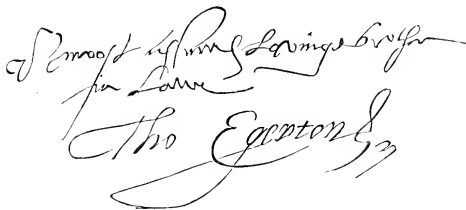 most assured Lovinge brother
in Lawe
Tho Egerton